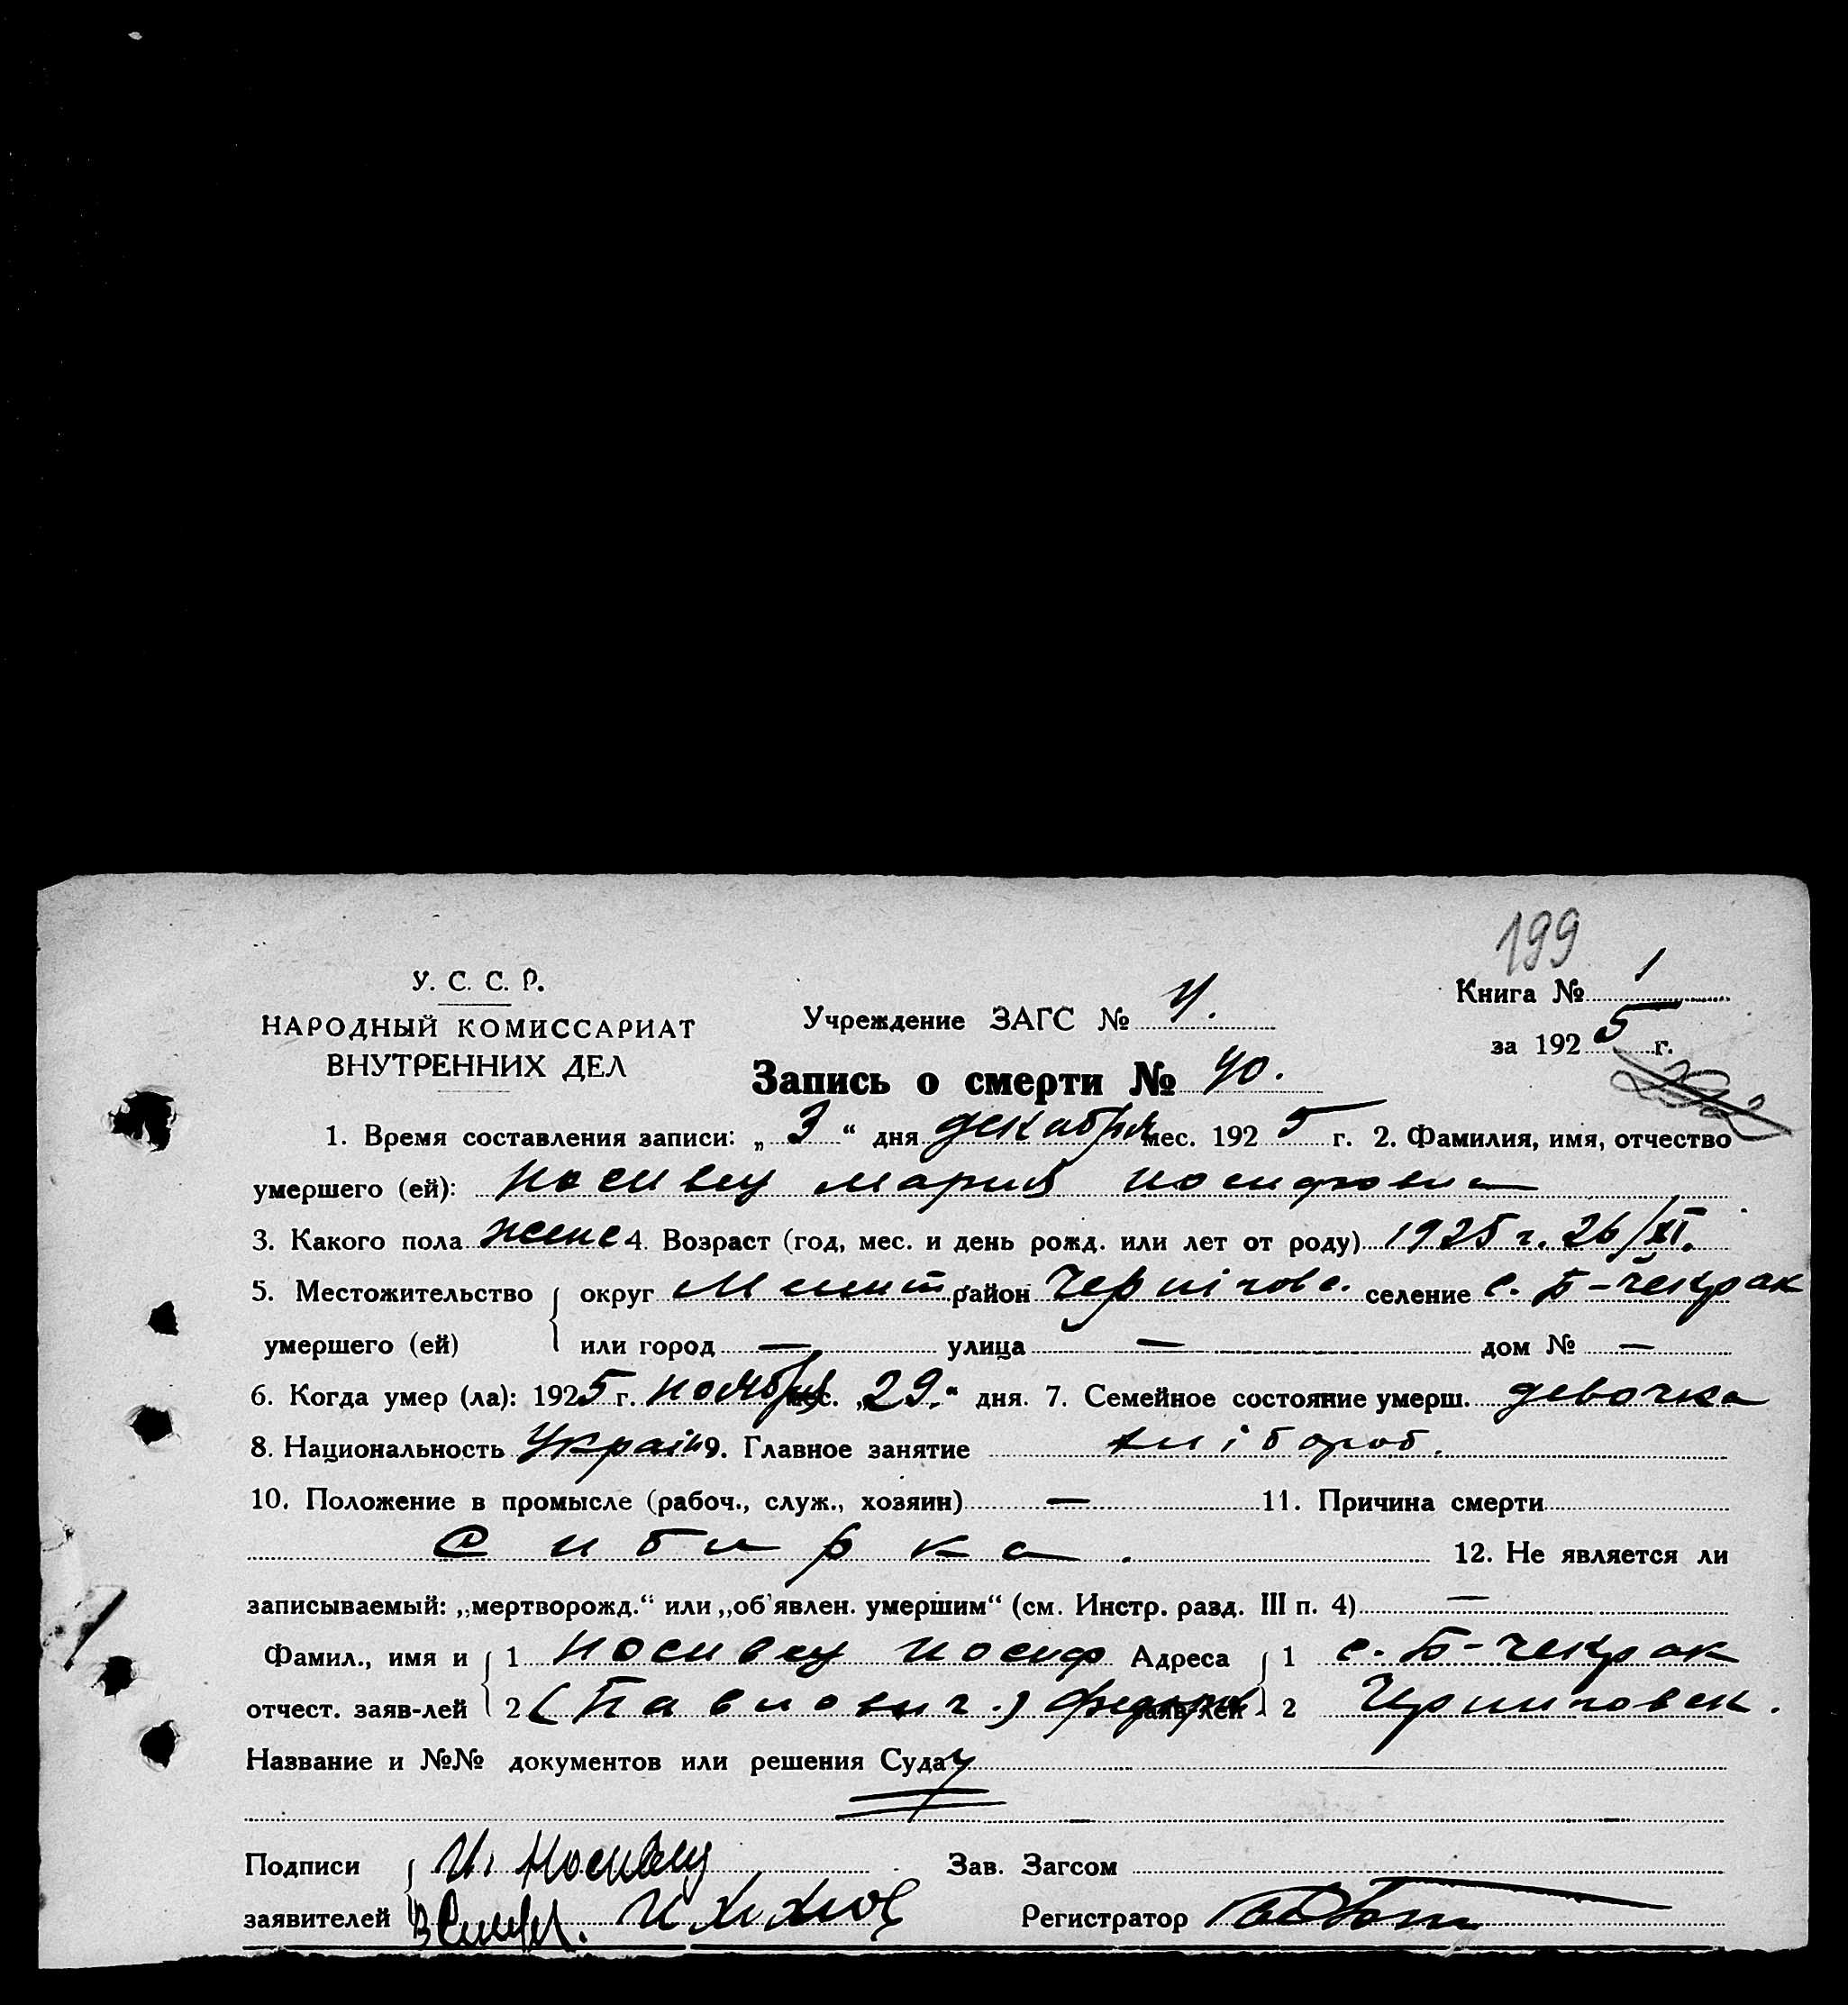 199
У. С. С. Р.
НАРОДНЫЙ КОМИССАРИАТ
ВНУТРЕННИХ ДЕЛ
Учреждение ЗАГС № 4.
Книга № 1
за 1925 г.
Запись о смерти № 40.
1. Время составления записи: „3“ дня декабря мес. 1925 г. 2. Фамилия, имя, отчество
умершего (ей): Носивец Мария Иосифовна
3. Какого пола женс 4. Возраст (год, мес. и день рожд. или лет от роду) 1925 г. 26/XI.
5. Местожительство округ Мелит район Черніговс. селение с. Б-Чекрак
умершего (ей) или город — улица — дом № —
6. Когда умер (ла): 1925 г. ноября мес. „29.“ дня. 7. Семейное состояние умерш. девочка
8. Национальность Україн 9. Главное занятие хлібороб.
10. Положение в промысле (рабоч., служ., хозяин) — 11. Причина смерти
Сибирка. 12. Не является ли
записываемый: „мертворожд.“ или „об'явлен. умершим“ (см. Инстр. разд. III п. 4) —
Фамил., имя и 1 Носивец Иосиф Адреса 1 с. Б-Чекрак
отчест. заяв-лей 2 (Павлович.) заяв-лей 2 Черниговск.
Название и №№ документов или решения Суда
Подписи И. Носивец Зав. Загсом
заявителей Регистратор